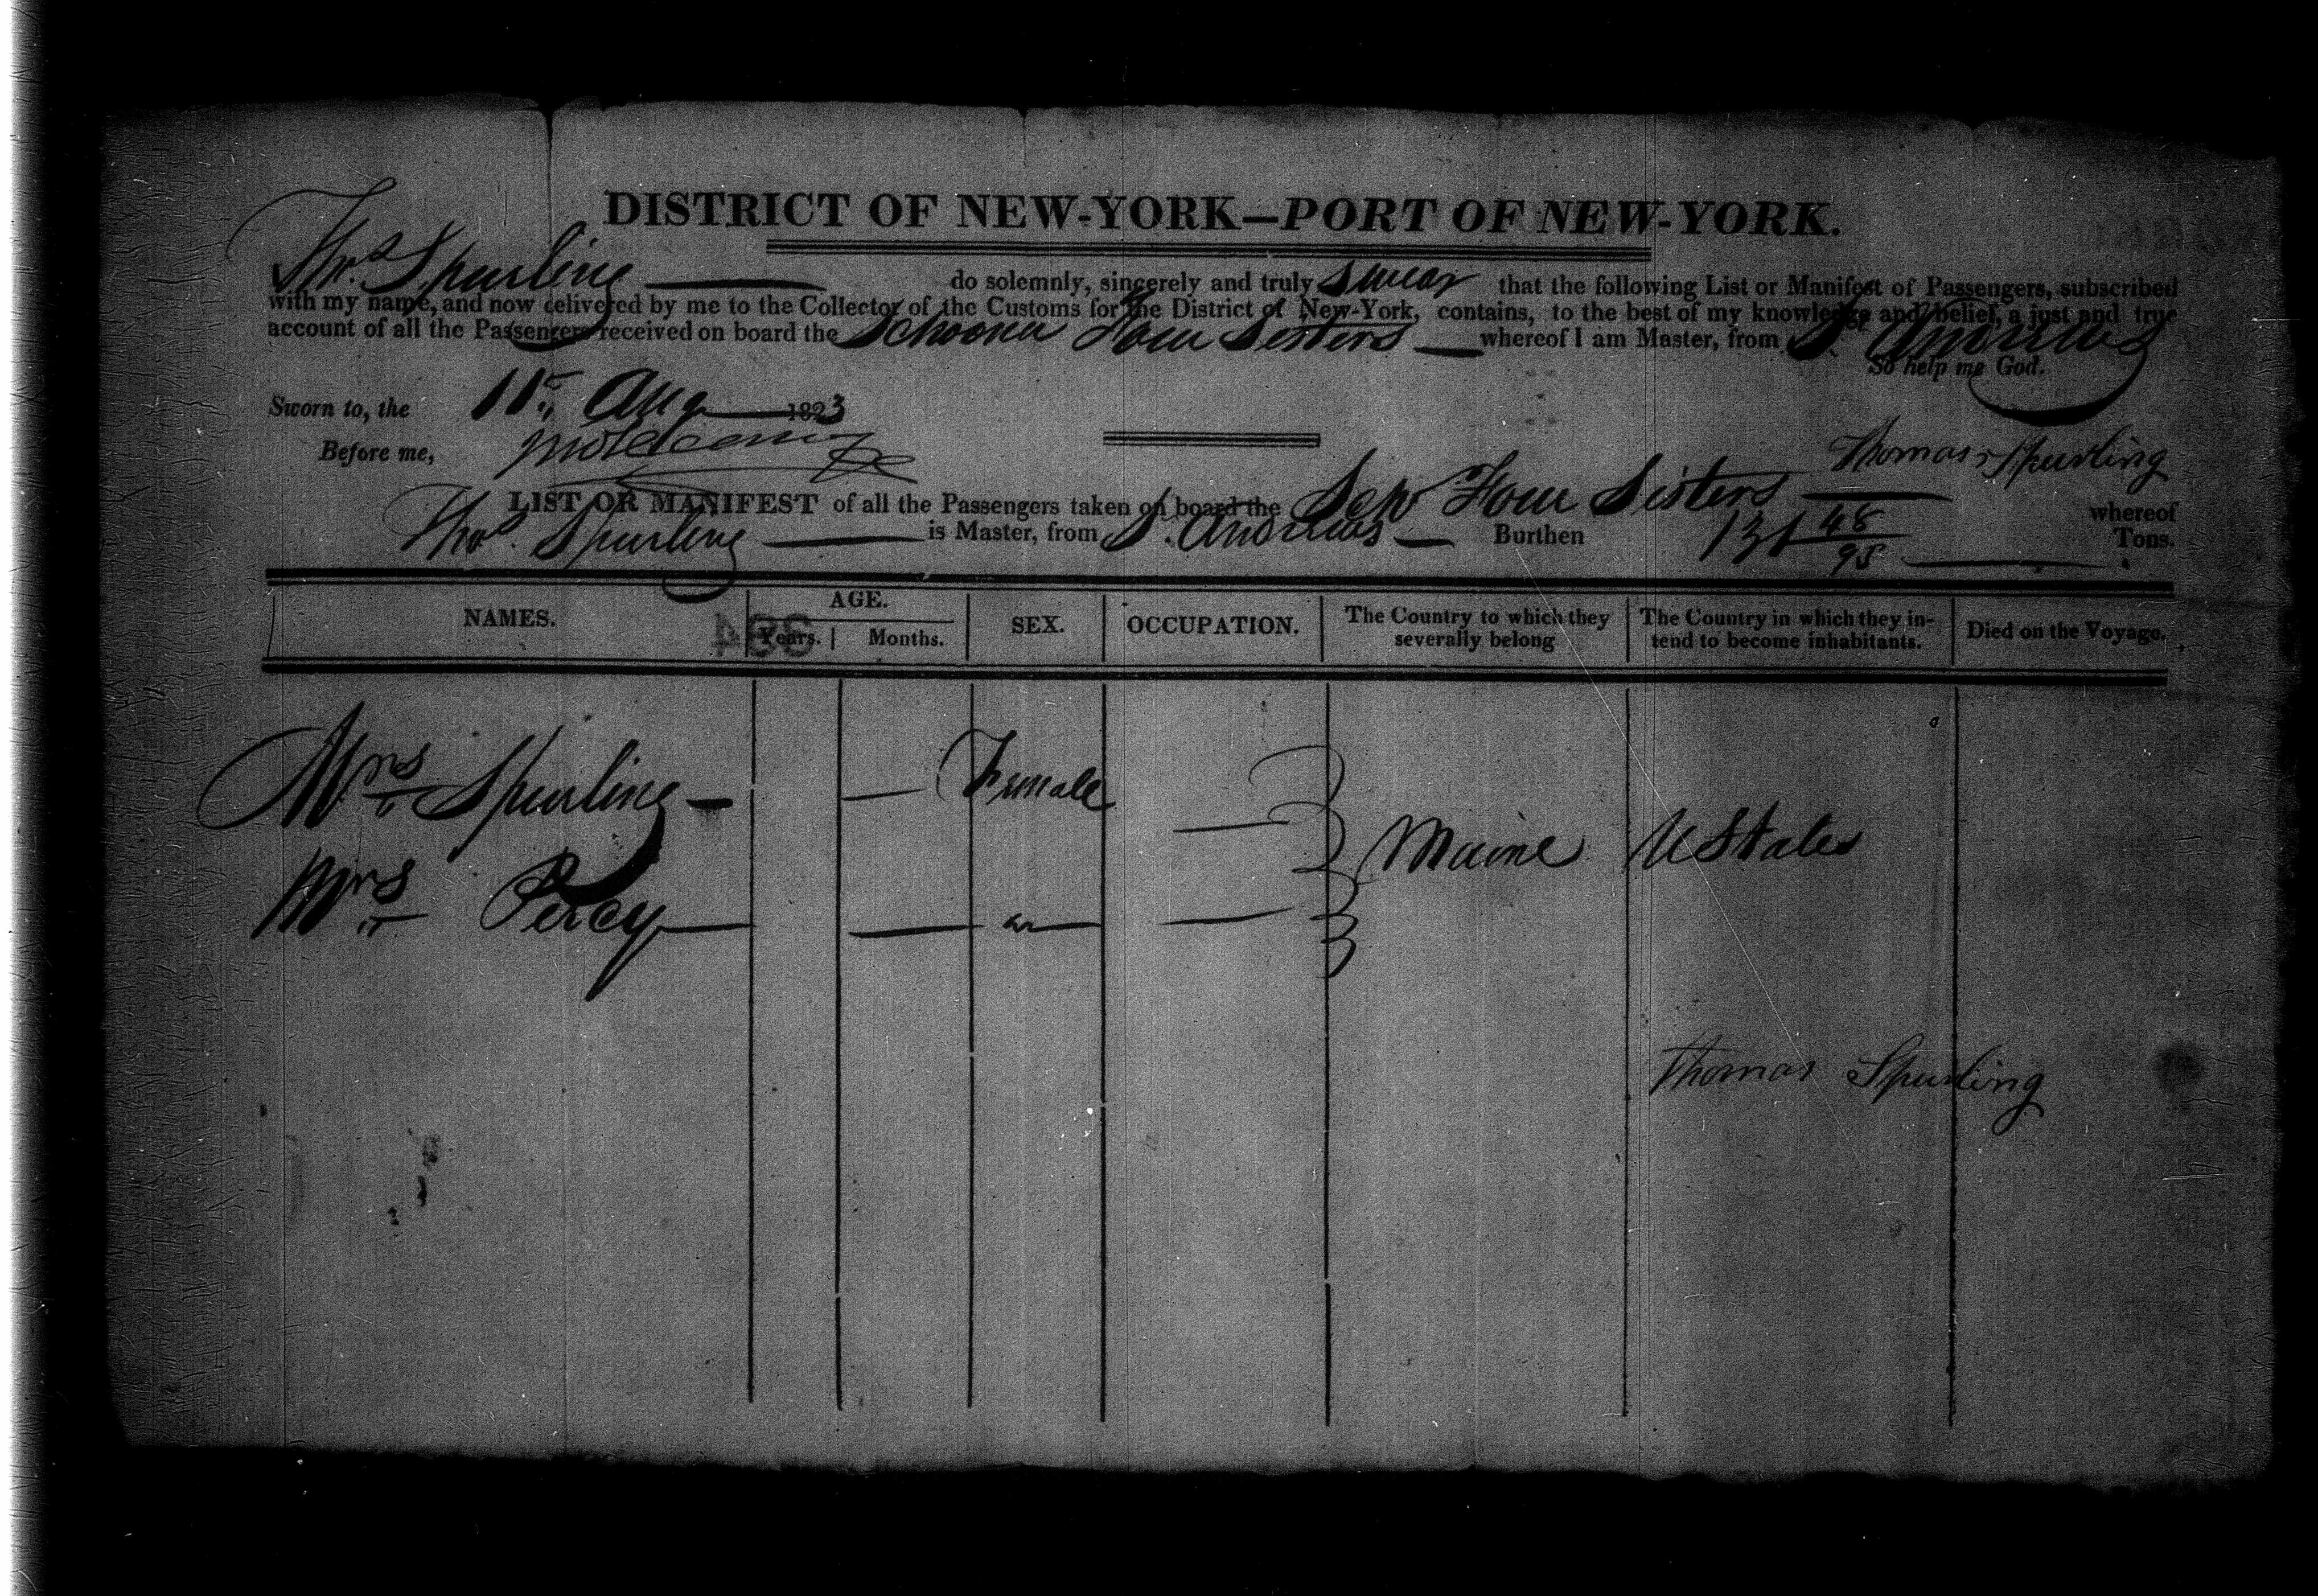 DISTRICT OF NEW-YORK—PORT OF NEW-YORK.
Thos Spurling do solemnly, sincerely and truly swear that the following List or Manifest of Passengers, subscribed
with my name, and now delivered by me to the Collector of the Customs for the District of New-York, contains, to the best of my knowledge and belief, a just and true
account of all the Passengers received on board the Schooner Four Sisters whereof I am Master, from St. Andrews
So help me God.
Sworn to, the 11th Aug 1823
Before me,
Thomas Spurling
LIST OR MANIFEST of all the Passengers taken on board the Schr Four Sisters whereof
Thos. Spurling is Master, from St. Andrews Burthen 131 48/95 Tons.
NAMES. AGE. Years. Months. SEX. OCCUPATION. The Country to which they severally belong The Country in which they intend to become inhabitants. Died on the Voyage.
Mrs Spurling — — Female —
Maine U States
Mrs Percy — — " — —
Thomas Spurling